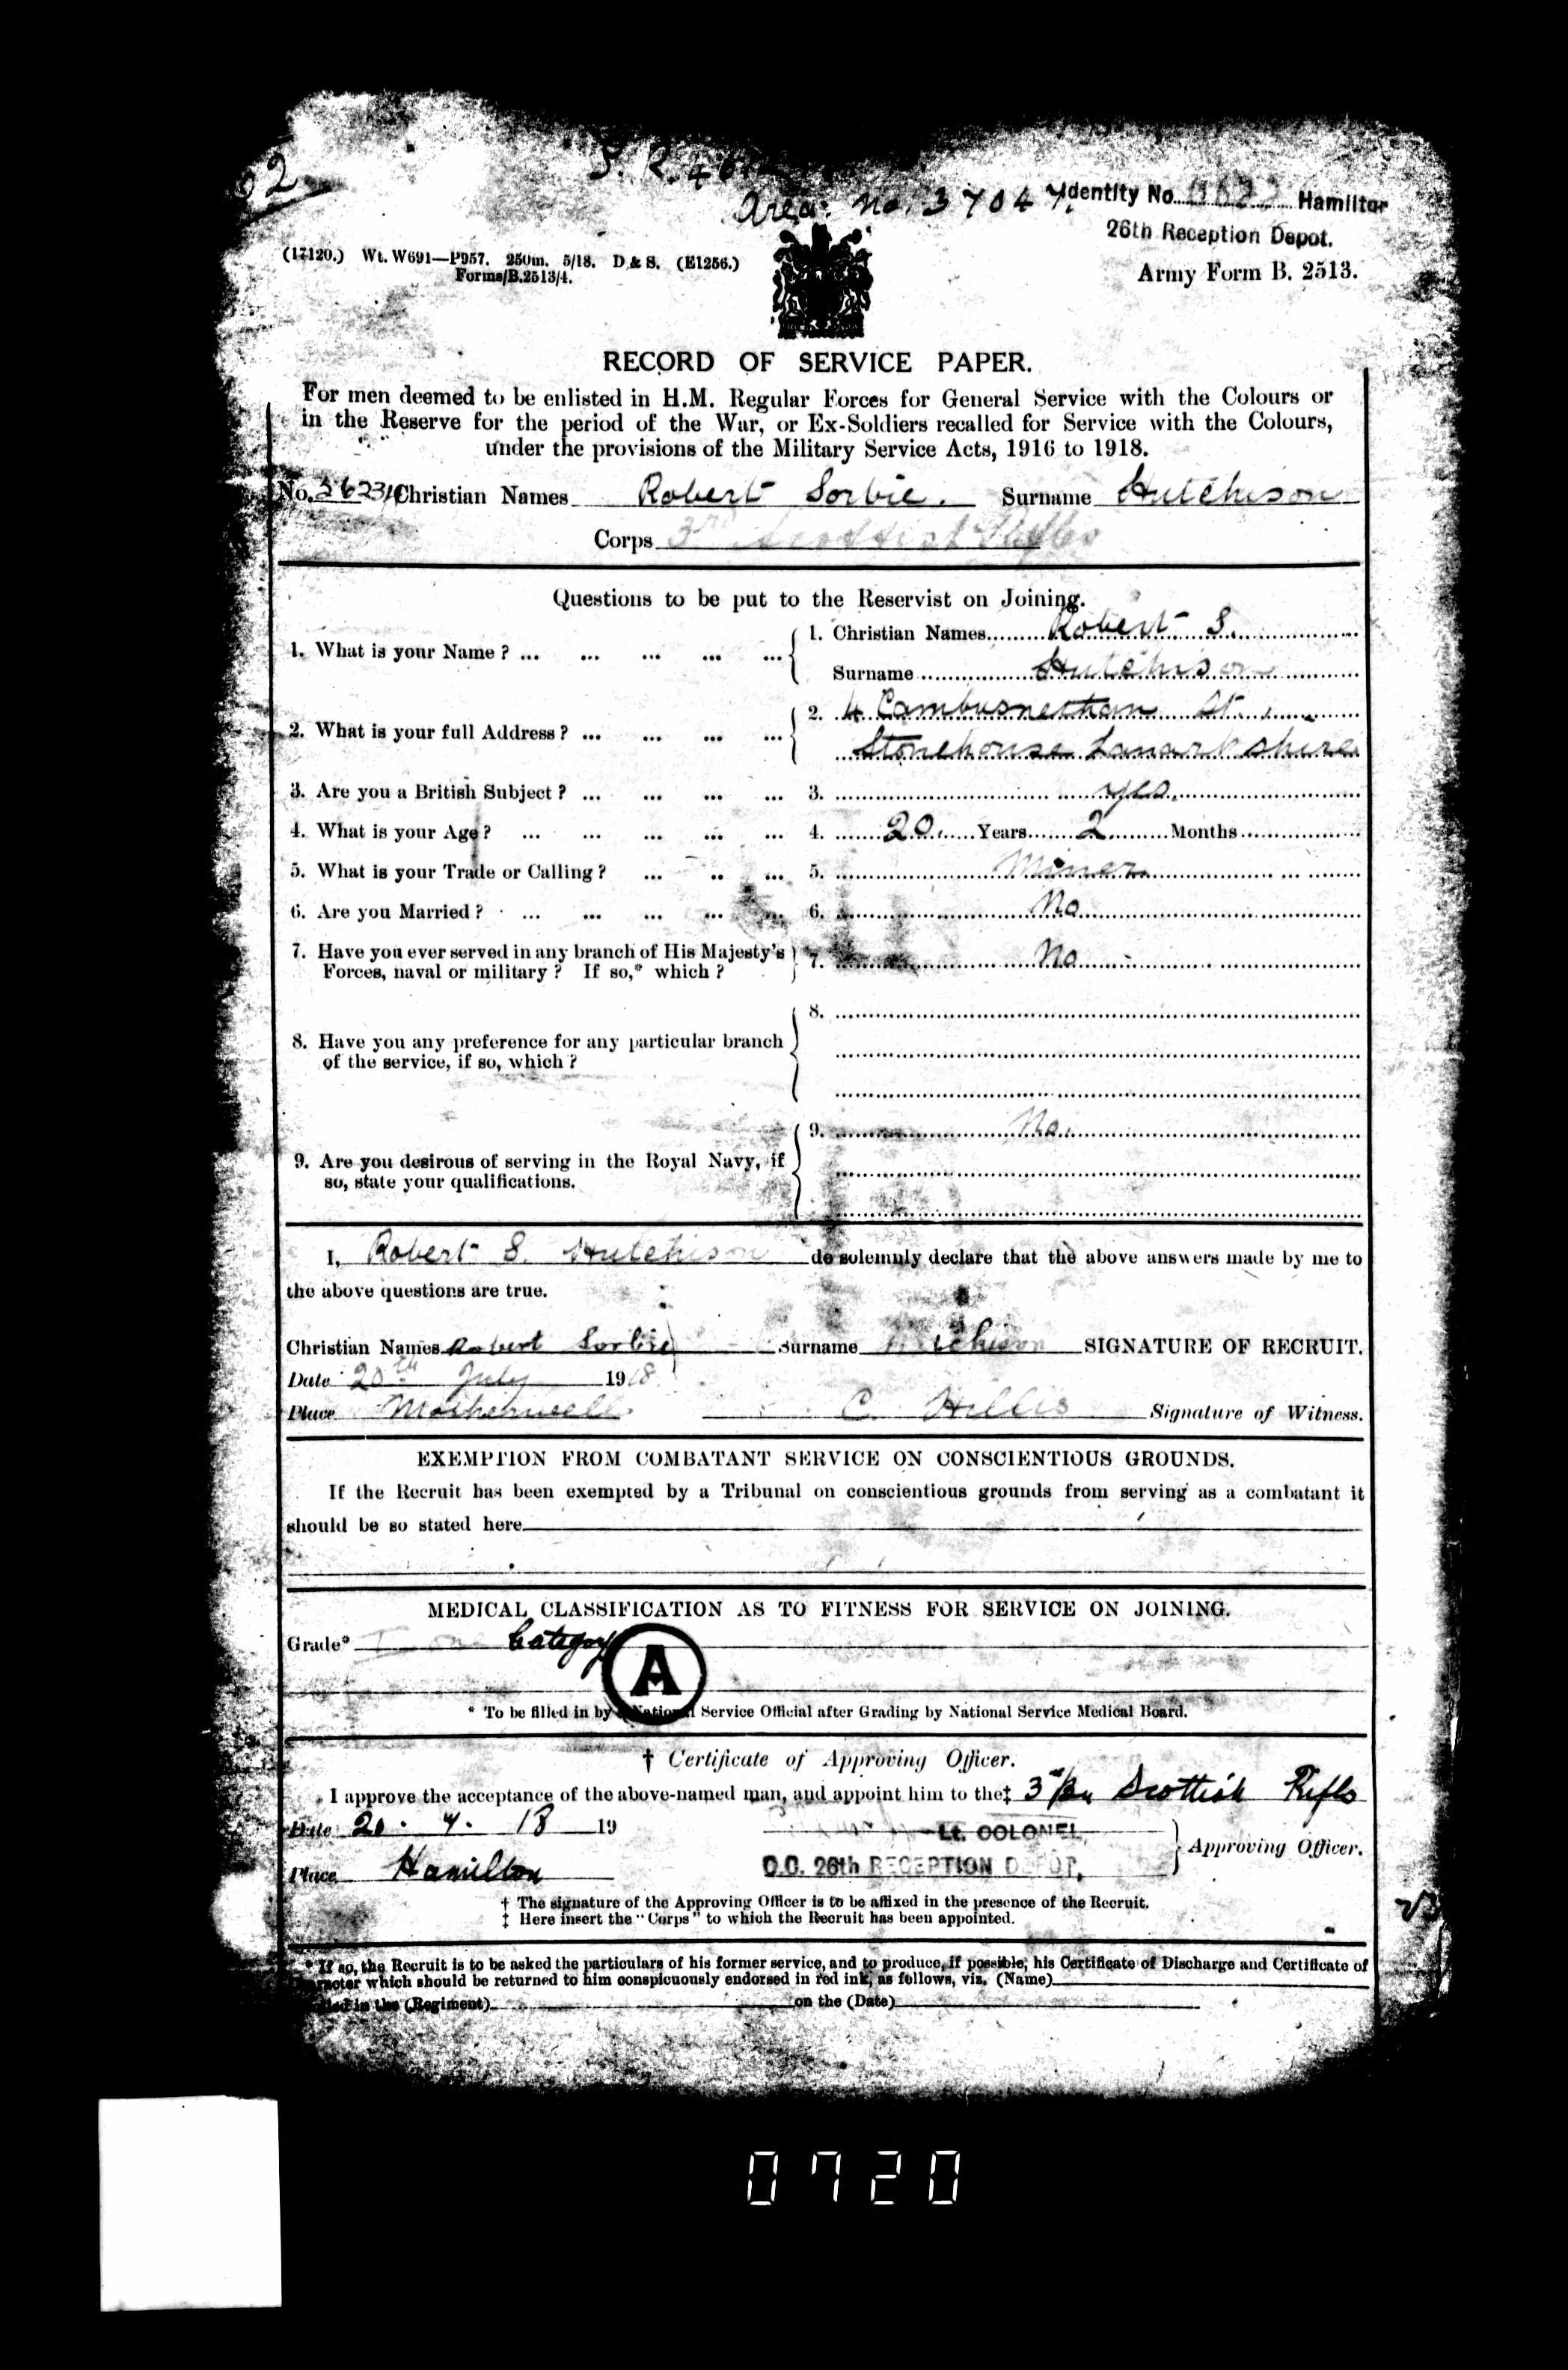 2
Area. No. 37047
Identity No. Hamilton
26th Reception Depot.
(17120.) Wt. W691—P957. 250m. 5/18. D & S. (E1256.)
Forms/B.2513/4.
Army Form B. 2513.
RECORD OF SERVICE PAPER.
For men deemed to be enlisted in H.M. Regular Forces for General Service with the Colours or
in the Reserve for the period of the War, or Ex-Soldiers recalled for Service with the Colours,
under the provisions of the Military Service Acts, 1916 to 1918.
No. Christian Names Robert Sorbie. Surname Hutchison
Corps 3rd Scottish Rifles
Questions to be put to the Reservist on Joining.
1. What is your Name ? ... ... ... ... ... 1. Christian Names Robert S.
Surname Hutchison
2. What is your full Address ? ... ... ... ... 2. 4 Cambusnethan St.,
Stonehouse Lanarkshire
3. Are you a British Subject ? ... ... ... ... 3. yes.
4. What is your Age ? ... ... ... ... ... 4. 20. Years 2 Months
5. What is your Trade or Calling ? ... ... ... 5. Miner
6. Are you Married ? ... ... ... ... ... 6. No
7. Have you ever served in any branch of His Majesty's
Forces, naval or military ? If so,* which ? 7. No
8.
8. Have you any preference for any particular branch
of the service, if so, which ?
9. No.
9. Are you desirous of serving in the Royal Navy, if
so, state your qualifications.
I, Robert S. Hutchison do solemnly declare that the above answers made by me to
the above questions are true.
Christian Names Robert Sorbie Surname Hutchison SIGNATURE OF RECRUIT.
Date 20th July 1918
Place Motherwell C. Hillis Signature of Witness.
EXEMPTION FROM COMBATANT SERVICE ON CONSCIENTIOUS GROUNDS.
If the Recruit has been exempted by a Tribunal on conscientious grounds from serving as a combatant it
should be so stated here
MEDICAL CLASSIFICATION AS TO FITNESS FOR SERVICE ON JOINING.
Grade* I one Category A
* To be filled in by National Service Official after Grading by National Service Medical Board.
† Certificate of Approving Officer.
I approve the acceptance of the above-named man, and appoint him to the‡ 3rd Bn Scottish Rifles
Date 20. 7. 18 19 Lt. COLONEL,
Approving Officer.
Place Hamilton O.C. 26th RECEPTION DEPOT.
† The signature of the Approving Officer is to be affixed in the presence of the Recruit.
‡ Here insert the "Corps" to which the Recruit has been appointed.
* If so, the Recruit is to be asked the particulars of his former service, and to produce, if possible, his Certificate of Discharge and Certificate of
Character which should be returned to him conspicuously endorsed in red ink, as follows, viz. (Name)
in the (Regiment) on the (Date)
0720